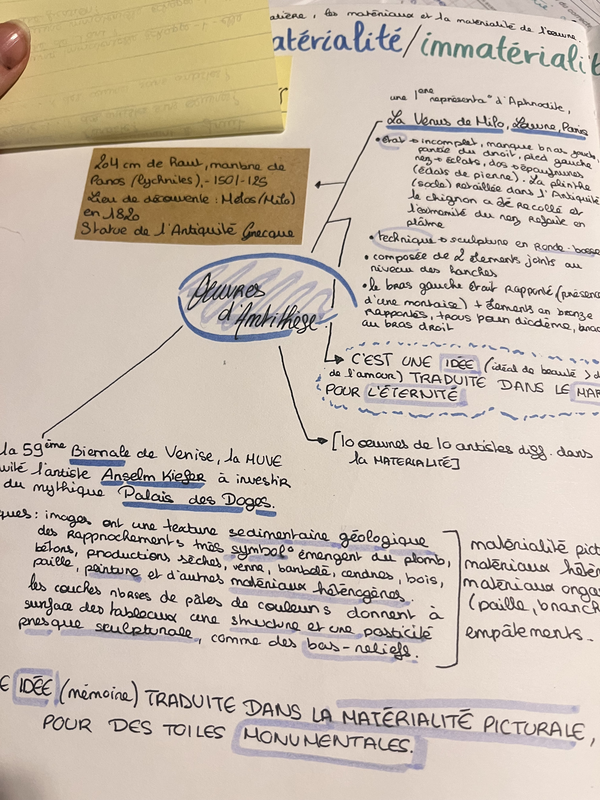 matière, les matériaux et la matérialité de l'œuvre.
atérialité/immatérialit
une 1ère représenta° d'Aphrodite,
La Venus de Milo, Louvre, Paris
• état → incomplet, manque bras gauche,
partie du droit, pied gauche
nez → éclats, dos → épaufrures
(éclats de pierre). La plinthe
(socle) retaillée dans l'Antiquité
le chignon a été recollé et
l'extrémité du nez refaite en
plâtre
204 cm de haut, marbre de
Paros (lychnites), - 150/-125
Lieu de découverte : Mélos (Milo)
en 1820
Statue de l'Antiquité Grecque
• technique → sculpture en Ronde-bosse
• composée de 2 éléments joints au
niveau des hanches
• le bras gauche était rapporté (présence
d'une mortaise) + éléments en bronze
rapportés, trous pour diadème, brac
au bras droit
Œuvres
d'Antithèse.
C'EST UNE IDÉE (idéal de beauté > d
de l'amour) TRADUITE DANS LE MAR
POUR L'ÉTERNITÉ
[10 œuvres de 10 artistes diff. dans
la MATERIALITÉ]
la 59ème Biennale de Venise, la MUVE
vité l'artiste Anselm Kiefer à investir
du mythique Palais des Doges.
ques : images ont une texture sedimentaire géologique
des rapprochements très symbol° émergent du plomb,
bétons, productions sèches, verre, barbelé, cendres, bois,
paille, peinture et d'autres matériaux hétérogènes.
les couches nbases de pâtes de couleurs donnent à
surface des tableaux une structure et une plasticité
presque sculpturale, comme des bas-reliefs.
matérialité pict
matériaux hétér
matériaux orga
(paille, branch
empâtements.
E IDÉE (mémoire) TRADUITE DANS LA MATÉRIALITÉ PICTURALE,
POUR DES TOILES MONUMENTALES.